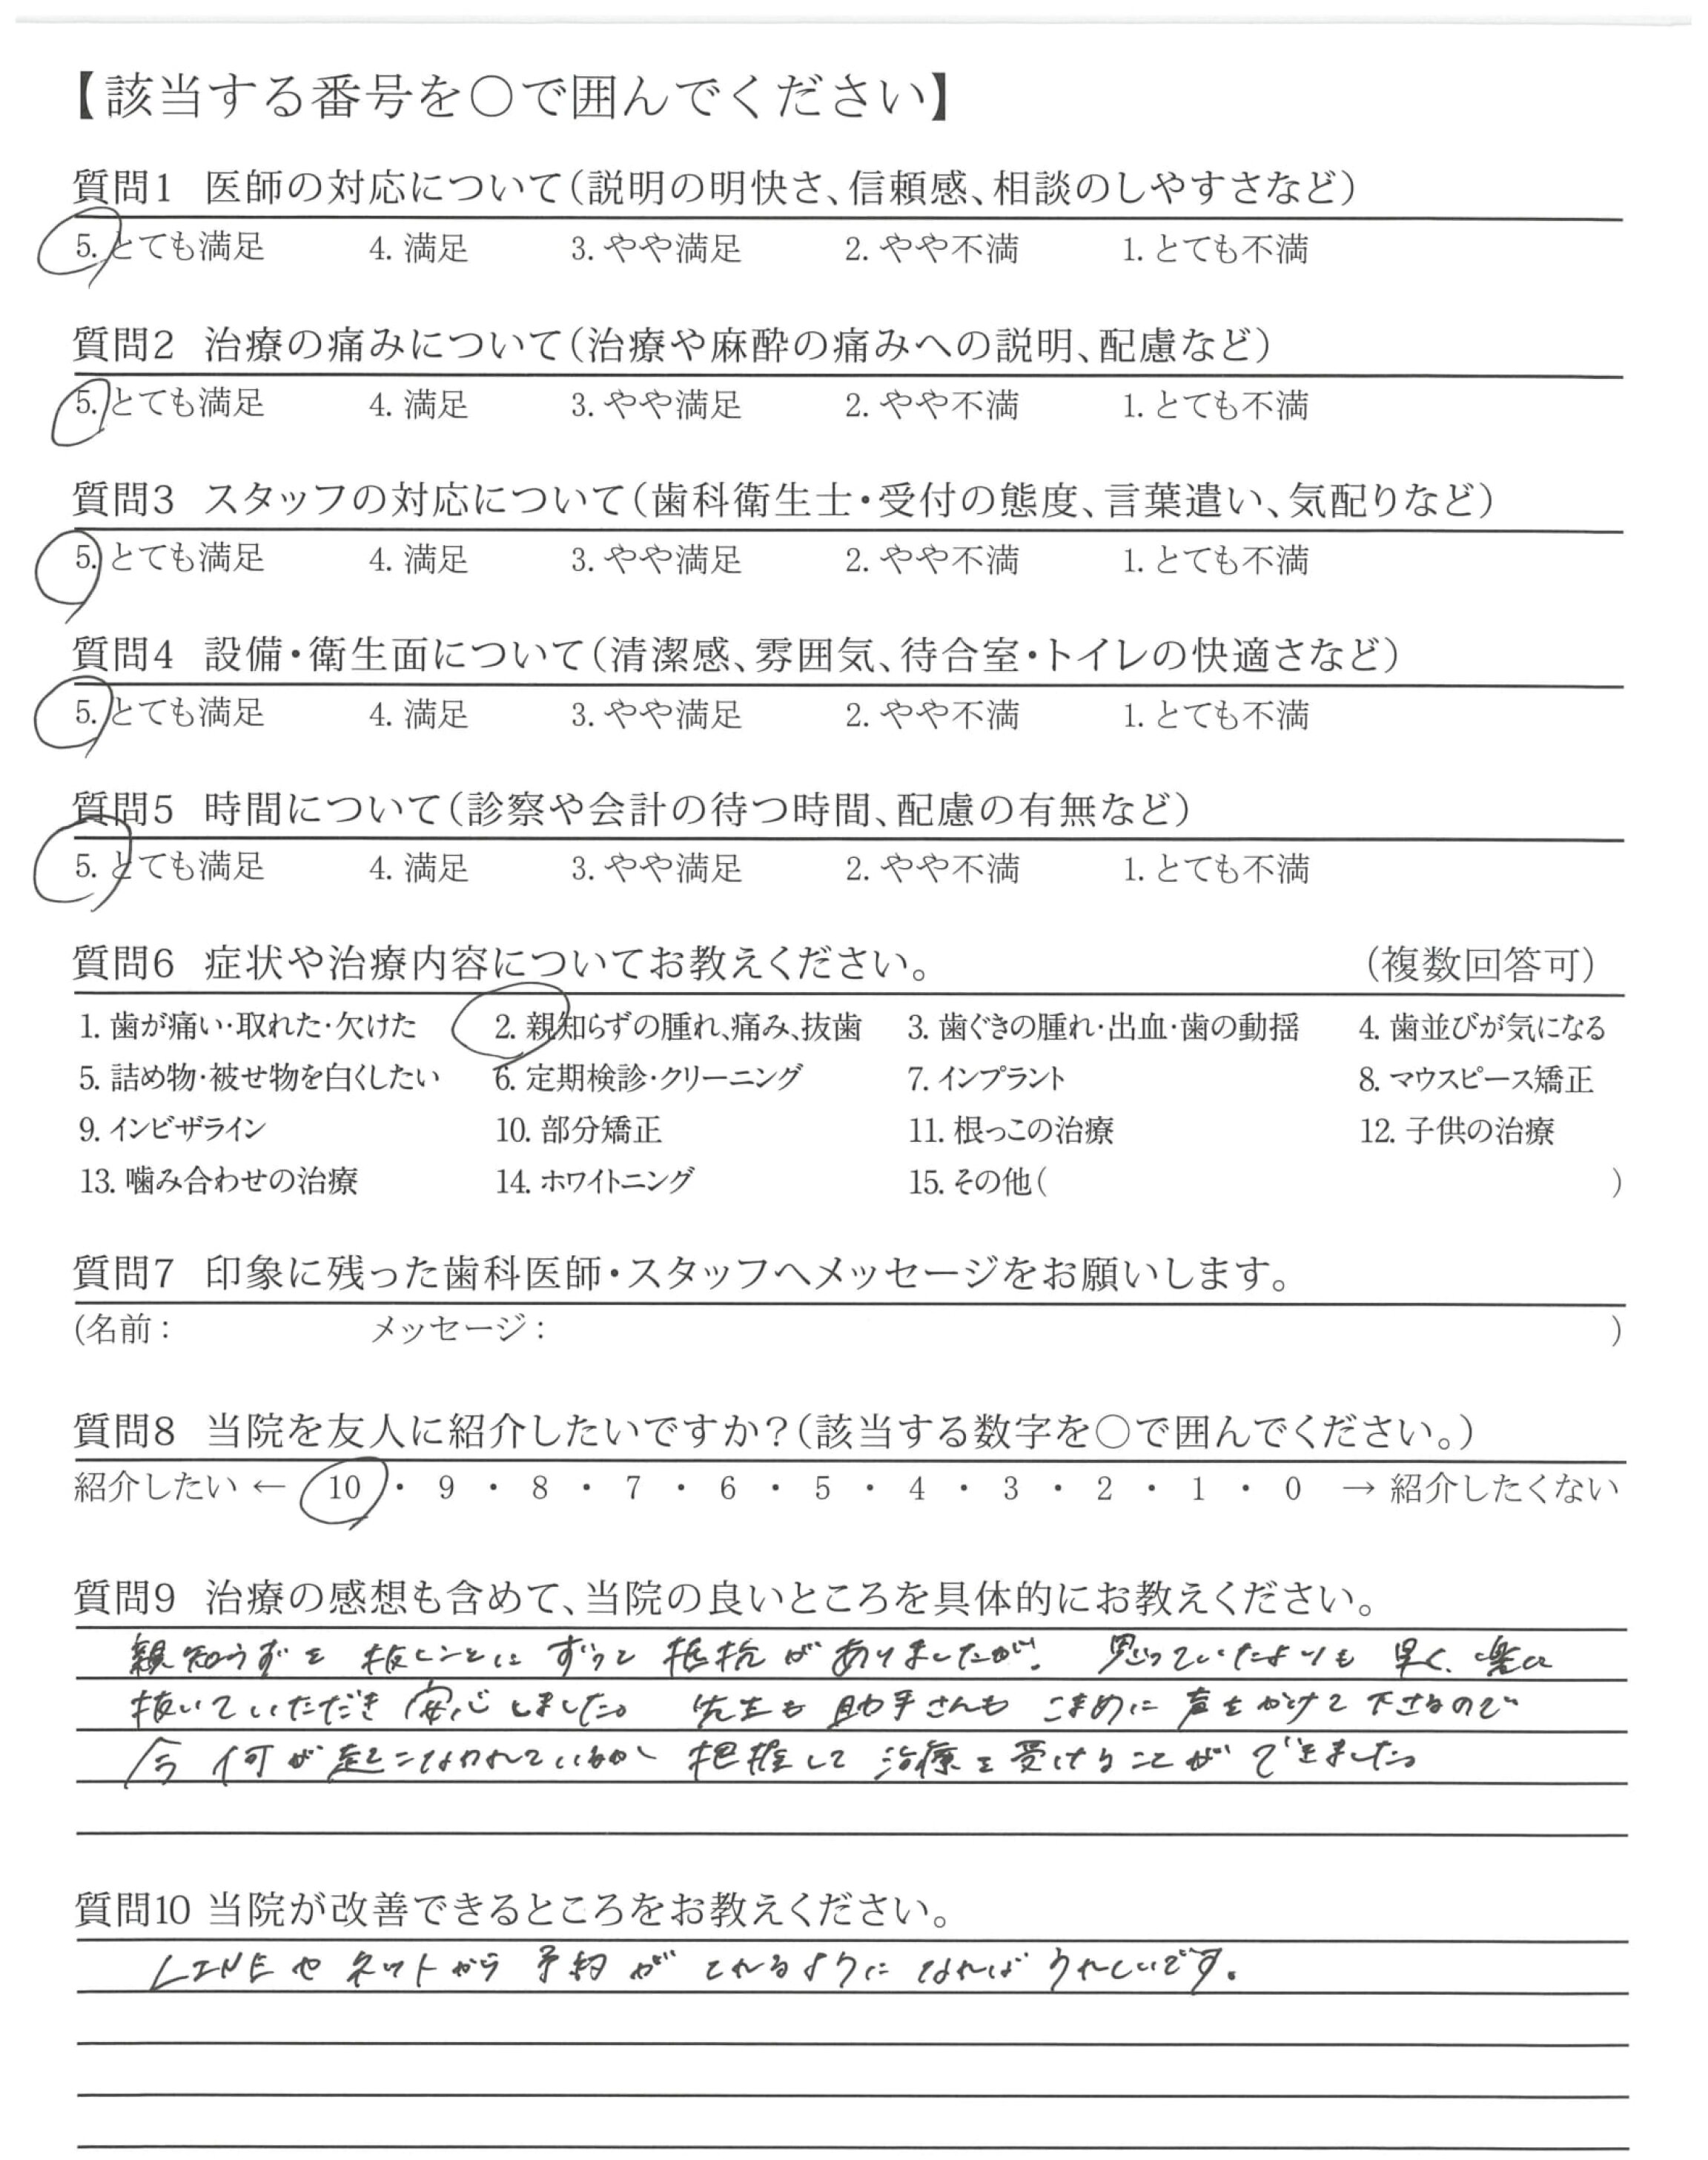 【該当する番号を○で囲んでください】
質問1 医師の対応について(説明の明快さ、信頼感、相談のしやすさなど)
5. とても満足 4. 満足 3. やや満足 2. やや不満 1. とても不満
質問2 治療の痛みについて(治療や麻酔の痛みへの説明、配慮など)
5. とても満足 4. 満足 3. やや満足 2. やや不満 1. とても不満
質問3 スタッフの対応について(歯科衛生士・受付の態度、言葉遣い、気配りなど)
5. とても満足 4. 満足 3. やや満足 2. やや不満 1. とても不満
質問4 設備・衛生面について(清潔感、雰囲気、待合室・トイレの快適さなど)
5. とても満足 4. 満足 3. やや満足 2. やや不満 1. とても不満
質問5 時間について(診察や会計の待つ時間、配慮の有無など)
5. とても満足 4. 満足 3. やや満足 2. やや不満 1. とても不満
質問6 症状や治療内容についてお教えください。 (複数回答可)
1. 歯が痛い・取れた・欠けた 2. 親知らずの腫れ、痛み、抜歯 3. 歯ぐきの腫れ・出血・歯の動揺 4. 歯並びが気になる
5. 詰め物・被せ物を白くしたい 6. 定期検診・クリーニング 7. インプラント 8. マウスピース矯正
9. インビザライン 10. 部分矯正 11. 根っこの治療 12. 子供の治療
13. 噛み合わせの治療 14. ホワイトニング 15. その他( )
質問7 印象に残った歯科医師・スタッフへメッセージをお願いします。
(名前: メッセージ: )
質問8 当院を友人に紹介したいですか?(該当する数字を○で囲んでください。)
紹介したい ← 10 ・ 9 ・ 8 ・ 7 ・ 6 ・ 5 ・ 4 ・ 3 ・ 2 ・ 1 ・ 0 → 紹介したくない
質問9 治療の感想も含めて、当院の良いところを具体的にお教えください。
親知らずを 抜くことに ずっと 抵抗が ありましたが、 思っていたよりも 早く、楽に
抜いていただき 安心しました。 先生も 助手さんも こまめに 声をかけて 下さるので
今 何が 起こなわれているか 把握して 治療を 受けることが できました。
質問10 当院が改善できるところをお教えください。
LINEや ネットから 予約が とれるように なれば うれしいです。